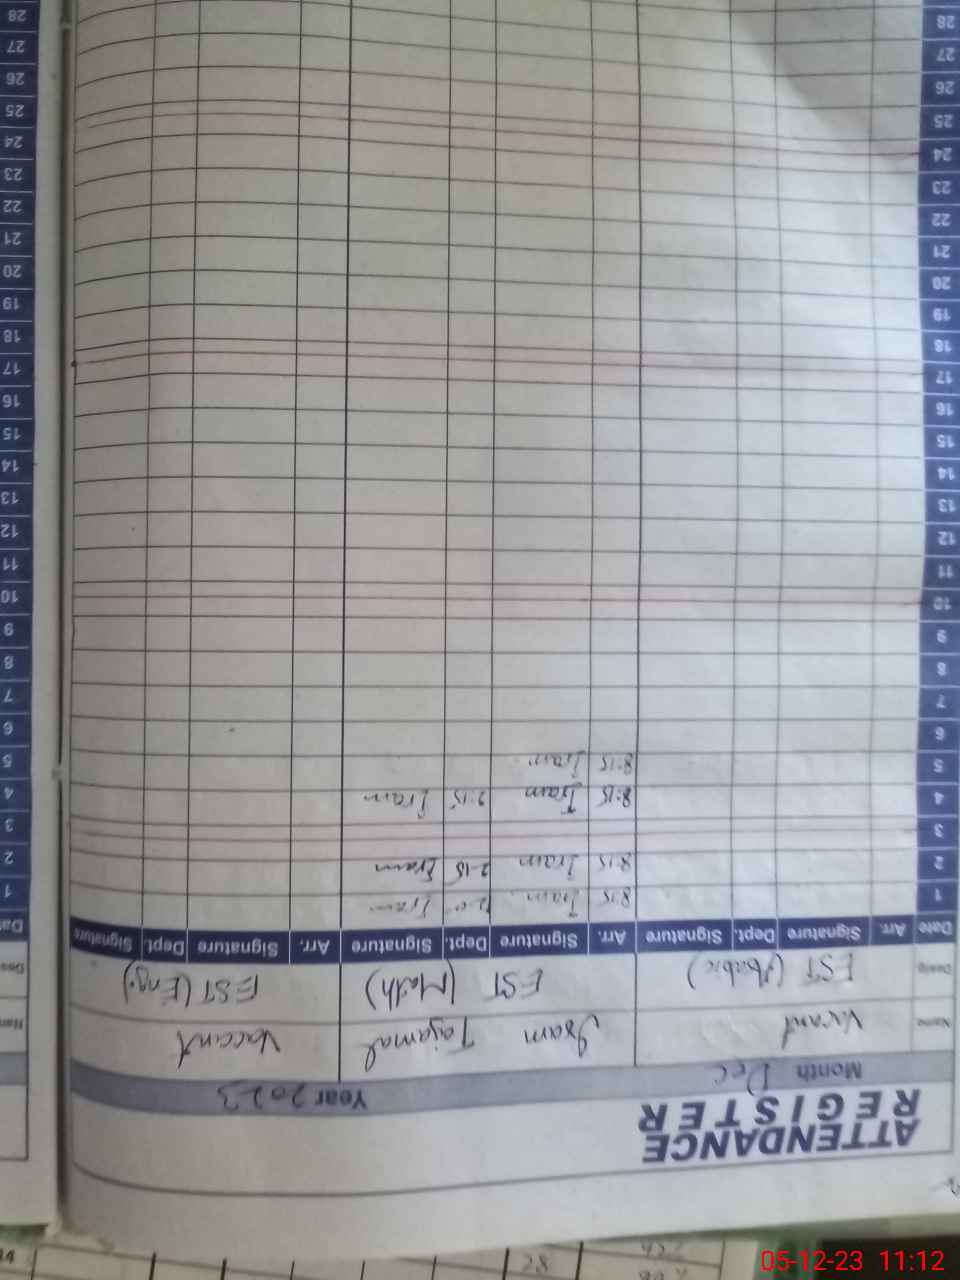 ATTENDANCE
REGISTER
Month Dec Year 2023
Name Vacant Iram Tajamal Vaccant
Desig EST (Arabic) EST (Math) EST (Eng.)
Date Arr. Signature Dept. Signature Arr. Signature Dept. Signature Arr. Signature Dept. Signature
1 8:15 Iram 2-0 Iram
2 8:15 Iram 2-15 Iram
3
4 8:15 Iram 2:15 Iram
5 8:15 Iram
6
7
8
9
10
11
12
13
14
15
16
17
18
19
20
21
22
23
24
25
26
27
28
Nam
Des
Dat
1
2
3
4
5
6
7
8
9
10
11
12
13
14
15
16
17
18
19
20
21
22
23
24
25
26
27
28
05-12-23 11:12